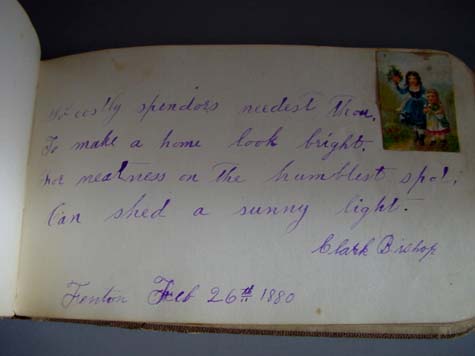 No costly spendors needest thou,
To make a home look bright,
For neatness on the humblest spot;
Can shed a sunny light.
Clark Bishop
Fenton Feb 26th 1880